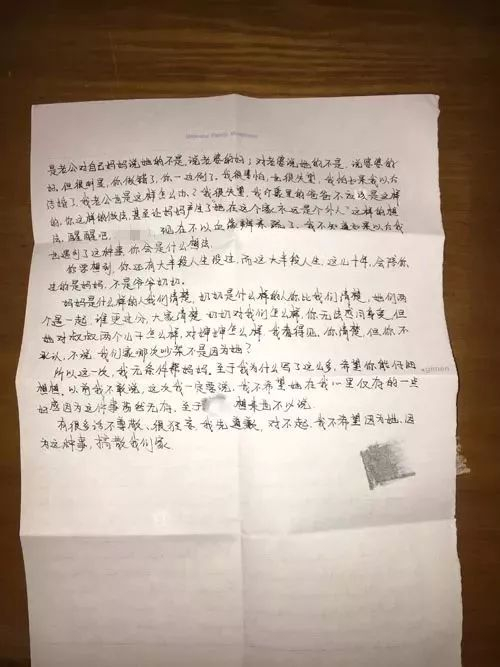 是老公对自己妈妈说她的不是,说老婆的好;对老婆说她的不是,说婆婆的
好,但很明显,你做错了,你一边倒了。我很害怕,也很失望,我怕如果我以后
结婚了,我老公也是这样怎么办?我很失望,我心里的爸爸不应该是这样
的,你这样的做法,甚至让妈妈产生了她在这个家永远是个外人”这样的想
法,醒醒吧 现在不以血缘 我不知道如果以后我
也遇到了这种事,你会是什么想法。
你要想到,你还有大半段人生没过,而这大半段人生,这几十年,会陪你
过的是妈妈,不是爷爷奶奶。
妈妈是什么样的人我们清楚,奶奶是什么样的人你比我们清楚,她们两
个遇一起,谁更过分,大家清楚,奶奶对我们怎么样,你无法感同身受,但
她对叔叔两个儿子怎么样,对婶婶怎么样,我看得见,你清楚,但你不
承认,不说,我们家哪次吵架不是因为她?
所以这一次,我无条件帮妈妈,至于我为什么写了这么多,希望你能仔细
想想,以前我不敢说,这次我一定要说,我不希望她在我心里仅有的一点
好感因为这件事荡然无存,至于 想来也不必说。
有很多话不尊敬、很狂妄,我先道歉,对不起,我不希望因为她,因
为这种事,搞散我们家